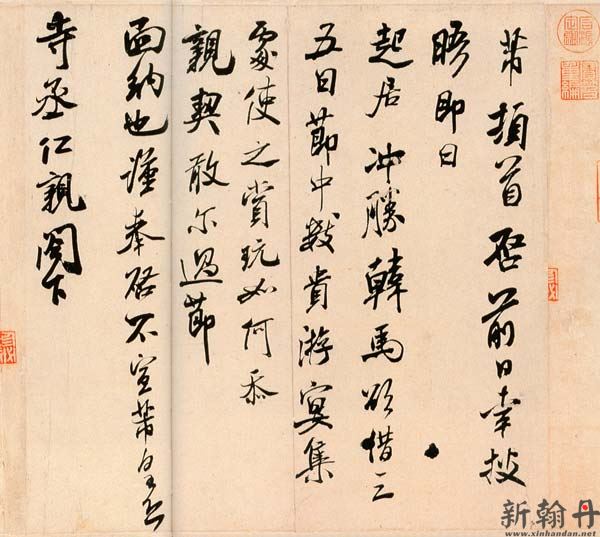 芾頓首啓前日幸披
晤即日
起居冲勝韓馬欲借三
五日節中數貴游宴集
處使之賞玩如何忝
親契敢尔過節
面納也謹奉啓不宣芾皇恐
寺丞仁親閣下
新翰丹
www.xinhandan.net